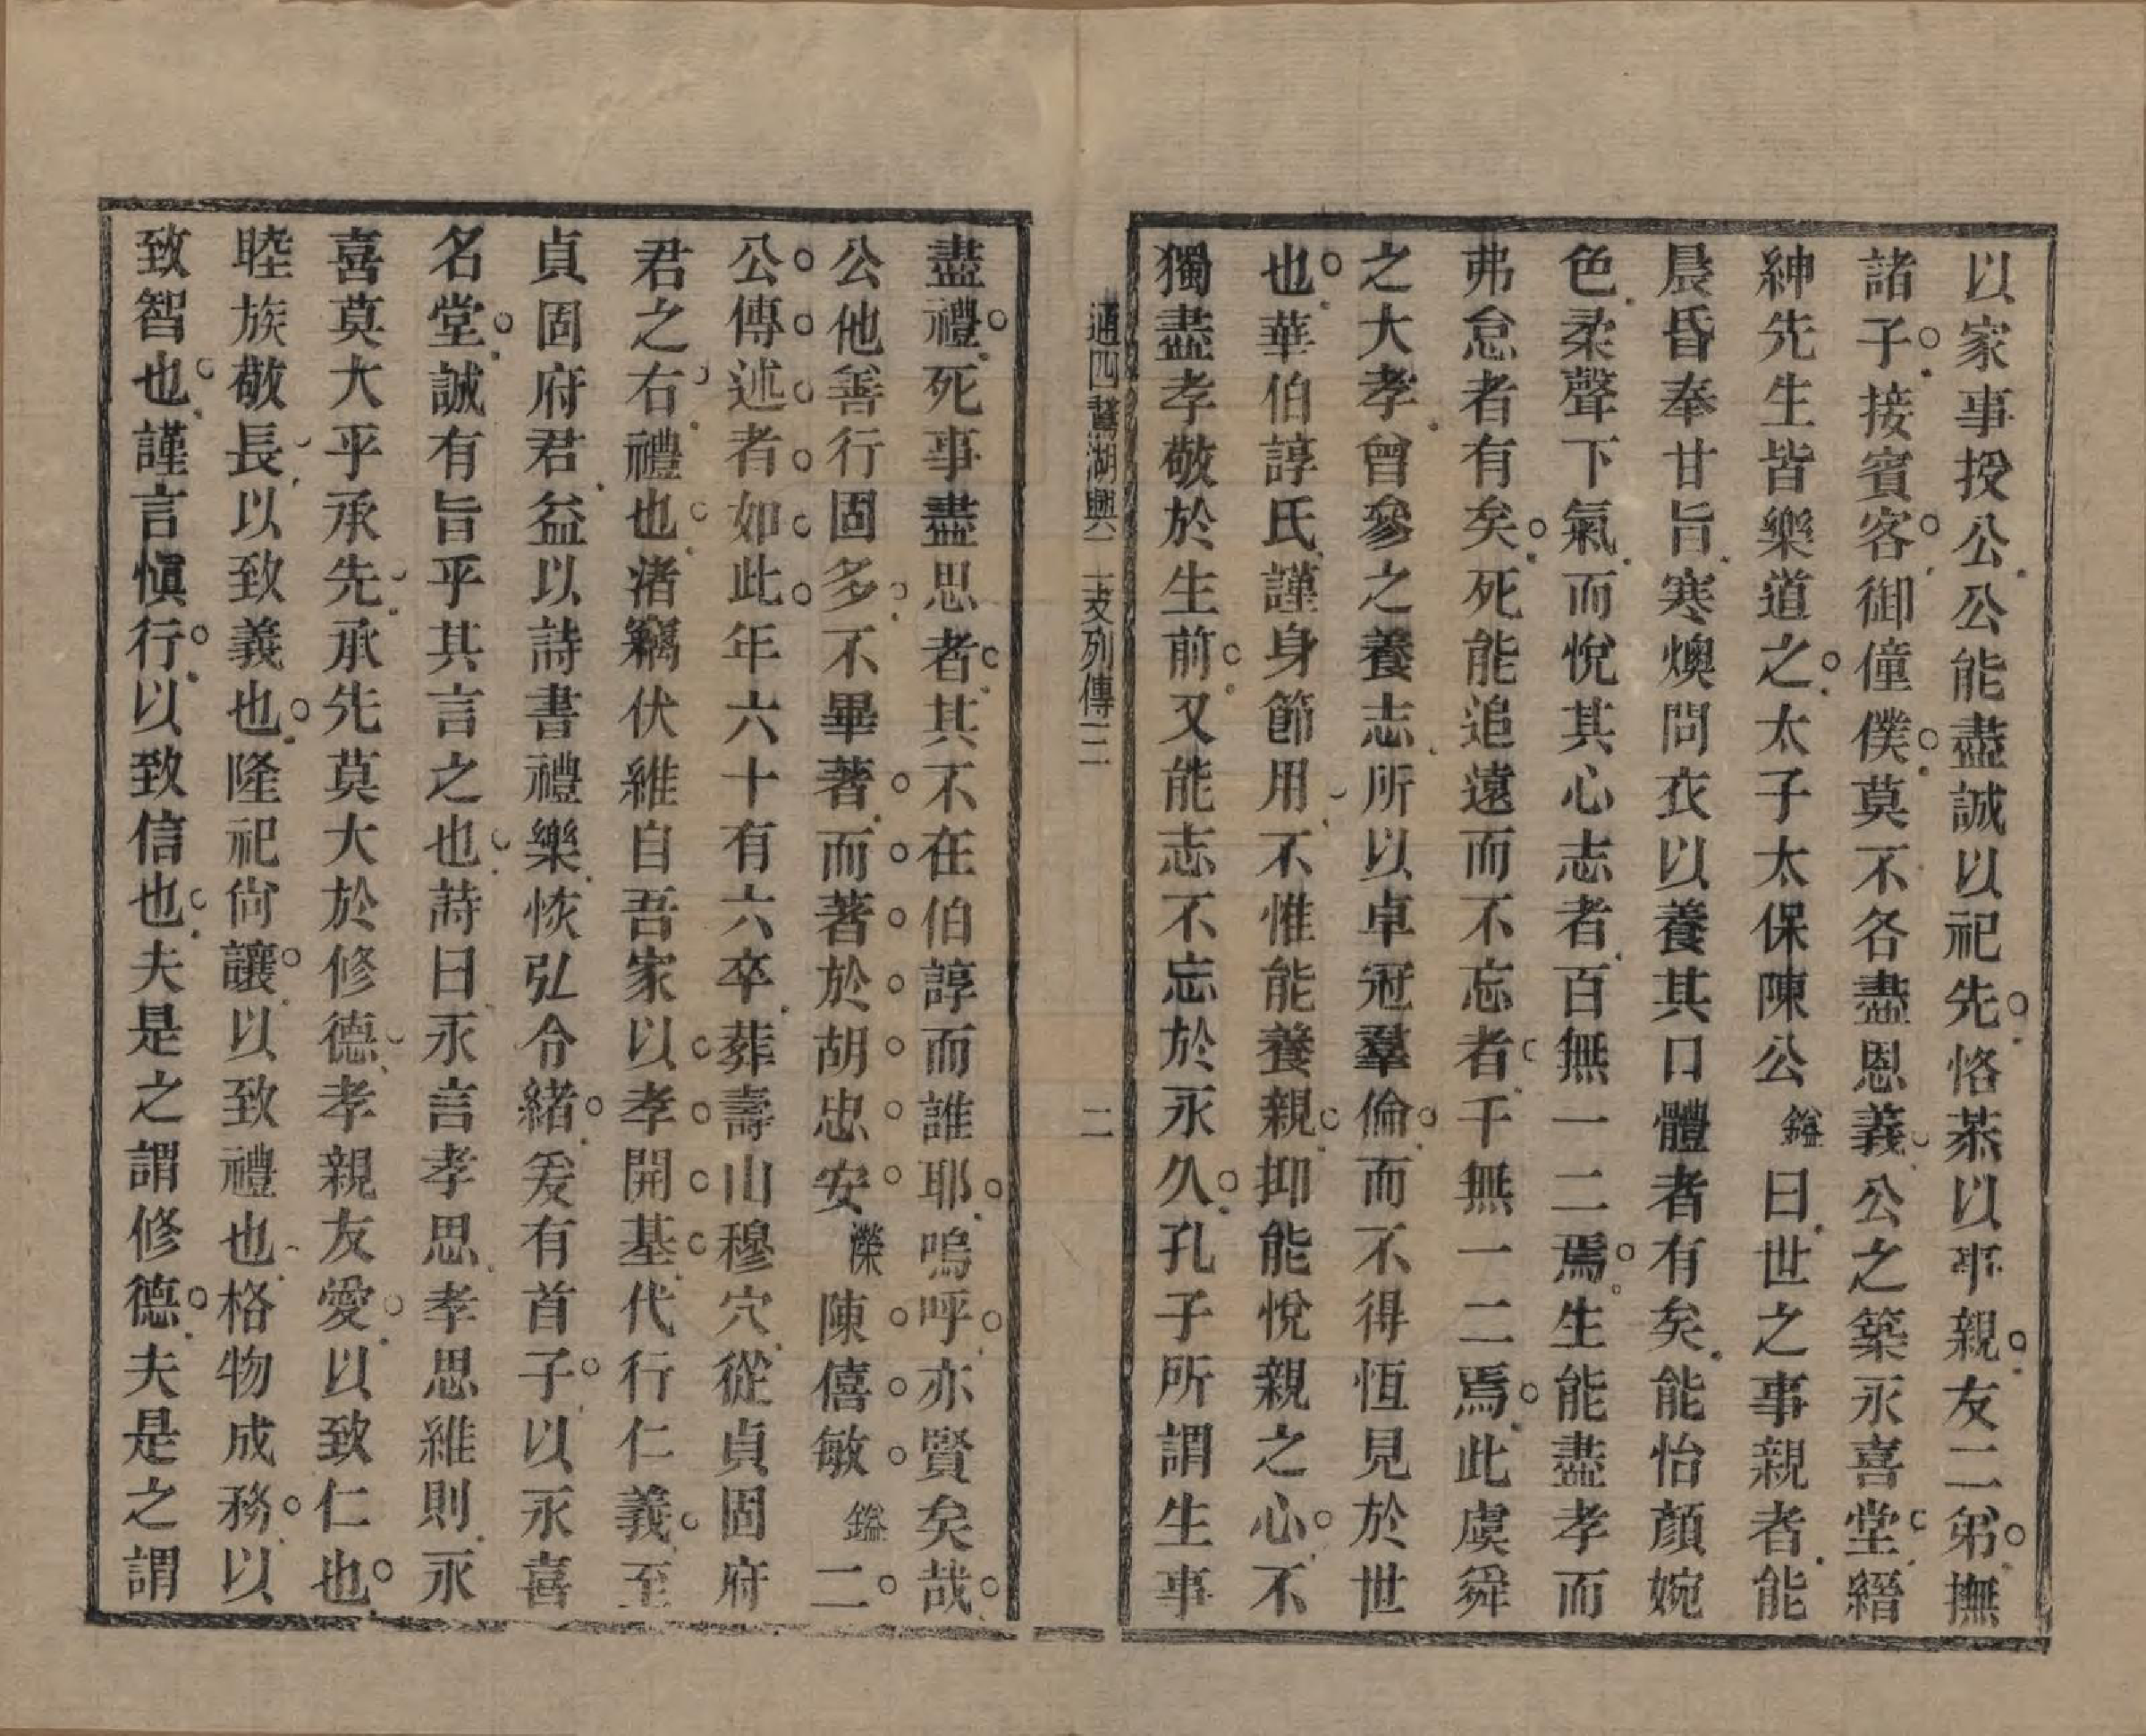 以家事授公公能盡誠以祀先恪恭以事親友二弟撫
諸子接賓客御僮僕莫不各盡恩義公之築永喜堂縉
紳先生皆樂道之太子太保陳公鎰曰世之事親者能
晨昏奉甘旨寒燠問衣以養其口體者有矣能怡顏婉
色柔聲下氣而悅其心志者百無一二焉生能盡孝而
弗怠者有矣死能追遠而不忘者千無一二焉此虞舜
之大孝曾參之養志所以卓冠羣倫而不得恆見於世
也華伯諄氏謹身節用不惟能養親抑能悅親之心不
獨盡孝敬於生前又能志不忘於永久孔子所謂生事
通四鵞湖興二支列傳三
二
盡禮死事盡思者其不在伯諄而誰耶嗚呼亦賢矣哉
公他善行固多不畢著而著於胡忠安濙陳僖敏鎰二
公傳述者如此年六十有六卒葬壽山穆穴從貞固府
君之右禮也渚竊伏維自吾家以孝開基代行仁義至
貞固府君益以詩書禮樂恢弘令緒爰有首子以永喜
名堂誠有旨乎其言之也詩曰永言孝思孝思維則永
喜莫大乎承先承先莫大於修德孝親友愛以致仁也
睦族敬長以致義也隆祀尙讓以致禮也格物成務以
致智也謹言愼行以致信也夫是之謂修德夫是之謂